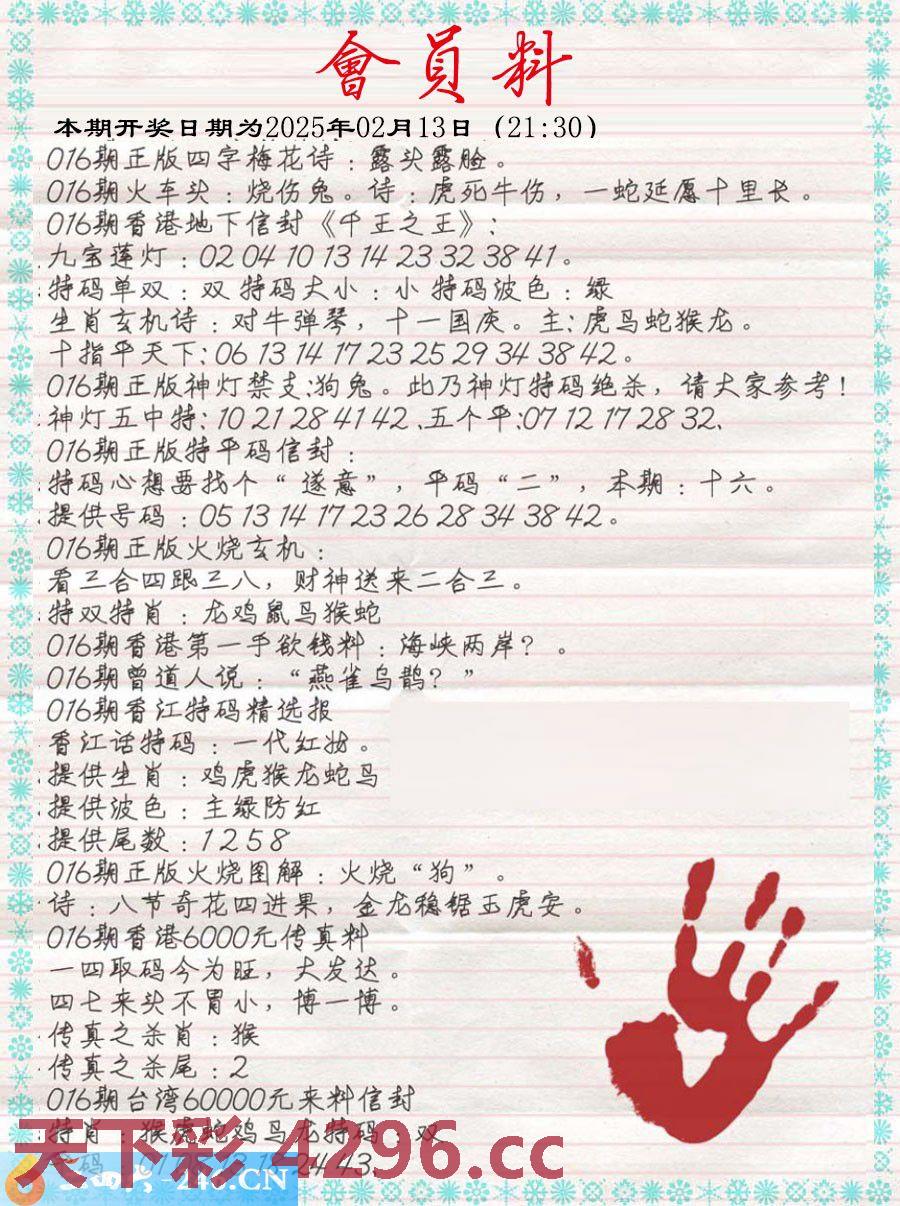 會員料
本期开奖日期为2025年02月13日（21:30）
016期正版四字梅花诗：露头露脸。
016期火车头：烧伤兔。诗：虎死牛伤，一蛇延愿十里长。
016期香港地下信封《千王之王》：
九宝莲灯：02 04 10 13 14 23 32 38 41。
特码单双：双 特码大小：小 特码波色：绿
生肖玄机诗：对牛弹琴，十一国庆。主：虎马蛇猴龙。
十指平天下：06 13 14 17 23 25 29 34 38 42。
016期正版神灯禁支:狗兔。此乃神灯特码绝杀，请大家参考！
神灯五中特：10 21 28 41 42 .五个平:07 12 17 28 32.
016期正版特平码信封：
特码心想要找个“遂意”，平码“二”，本期：十六。
提供号码：05 13 14 17 23 26 28 34 38 42。
016期正版火烧玄机：
看三合四跟三八，财神送来二合三。
特双特肖：龙鸡鼠马猴蛇
016期香港第一手欲钱料：海峡两岸？。
016期曾道人说：“燕雀乌鹊？”
016期香江特码精选报
香江话特码：一代红妆。
提供生肖：鸡虎猴龙蛇马
提供波色：主绿防红
提供尾数：1 2 5 8
016期正版火烧图解：火烧“狗”。
诗：八节奇花四进果，金龙稳锯玉虎安。
016期香港6000元传真料
一四取码今为旺，大发达。
四七来头不胃小，博一博。
传真之杀肖：猴
传真之杀尾：2
016期台湾60000元来料信封
特肖：猴虎蛇鸡马龙特码：双
天下彩 4296.cc
24 43.
246.CN